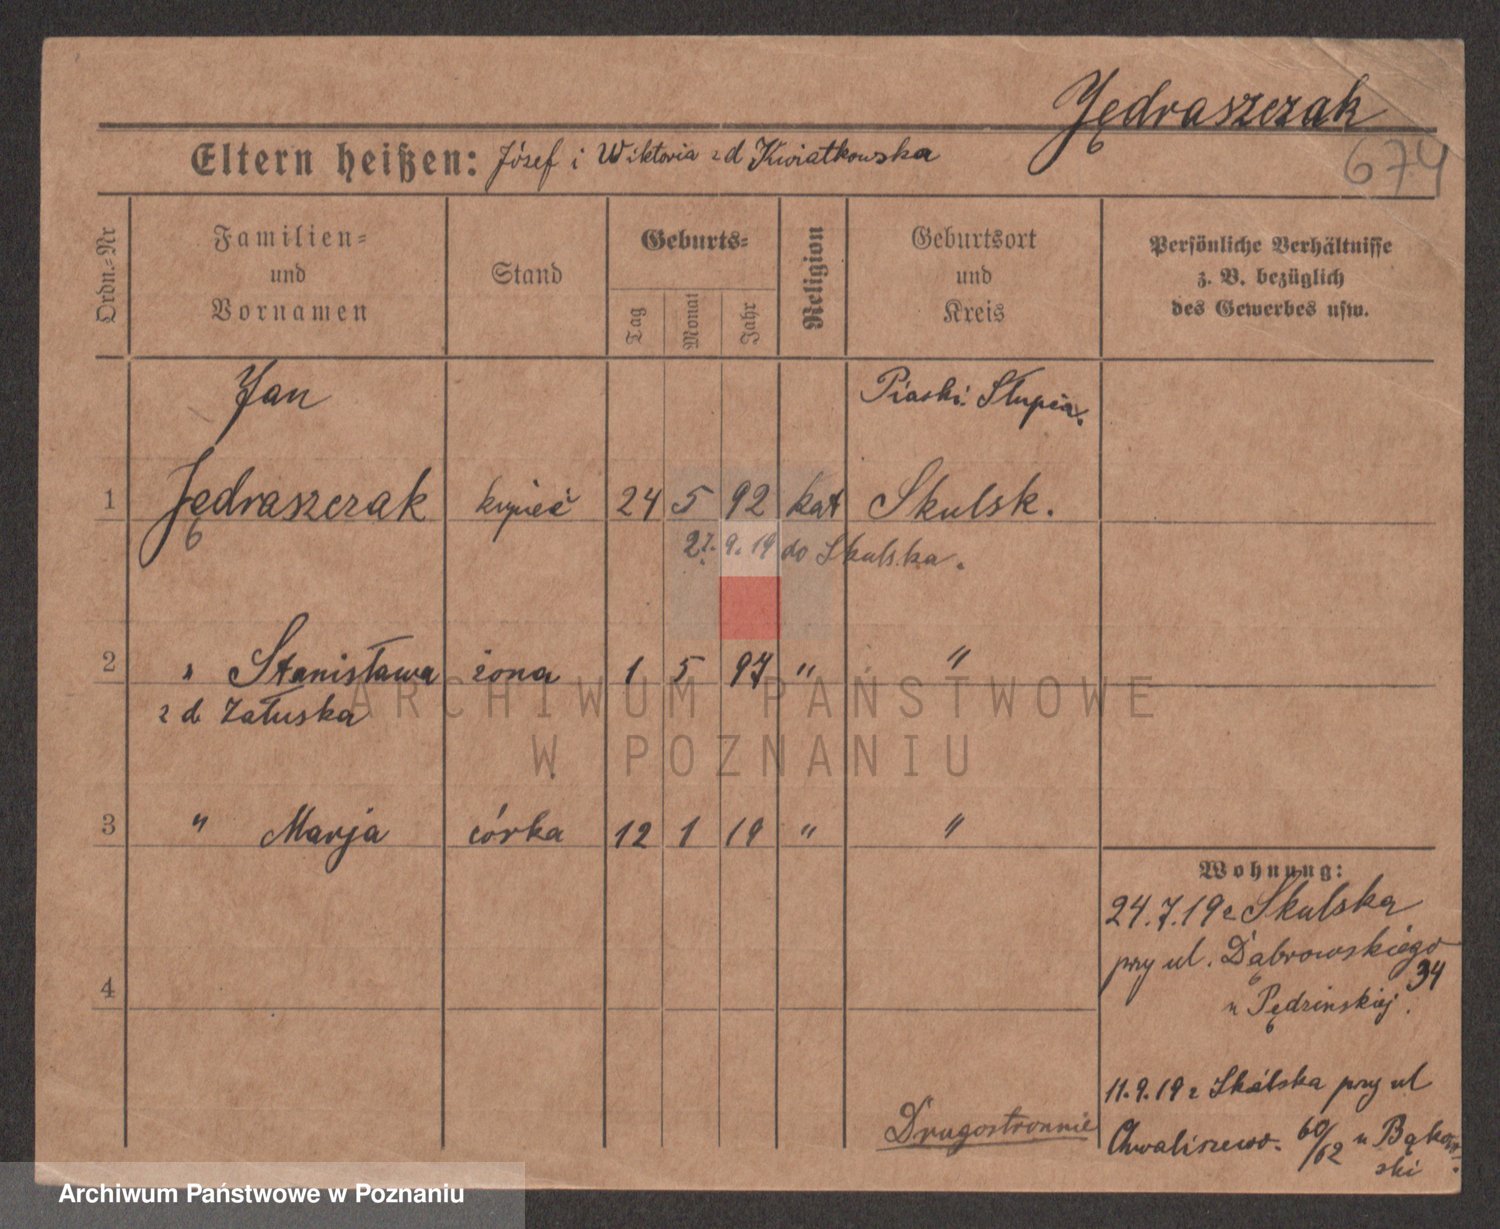 Jędraszczak
674
Eltern heißen: Józef i Wiktoria zd Kwiatkowska
Ordn.-Nr
Familien-
und
Vornamen
Stand
Geburts-
Tag
Monat
Jahr
Religion
Geburtsort
und
Kreis
Persönliche Verhältnisse
z. B. bezüglich
des Gewerbes usw.
Jan Piaski Słupca.
1 Jędraszczak kupiec 24 5 92 kat Skulsk.
27. 9. 19 do Skulska.
2 " Stanisława żona 1 5 97 " "
z d Załuska
3 " Marja córka 12 1 19 " "
4
Wohnung:
24.7.19 z Skulska
przy ul. Dąbrowskiego
34
u Pędzińskiej.
11.9.19 z Skulska przy ul
Chwaliszewo. 60/62 u Bąkow-
ski
Drugostronnie
ARCHIWUM PAŃSTWOWE
W POZNANIU
Archiwum Państwowe w Poznaniu